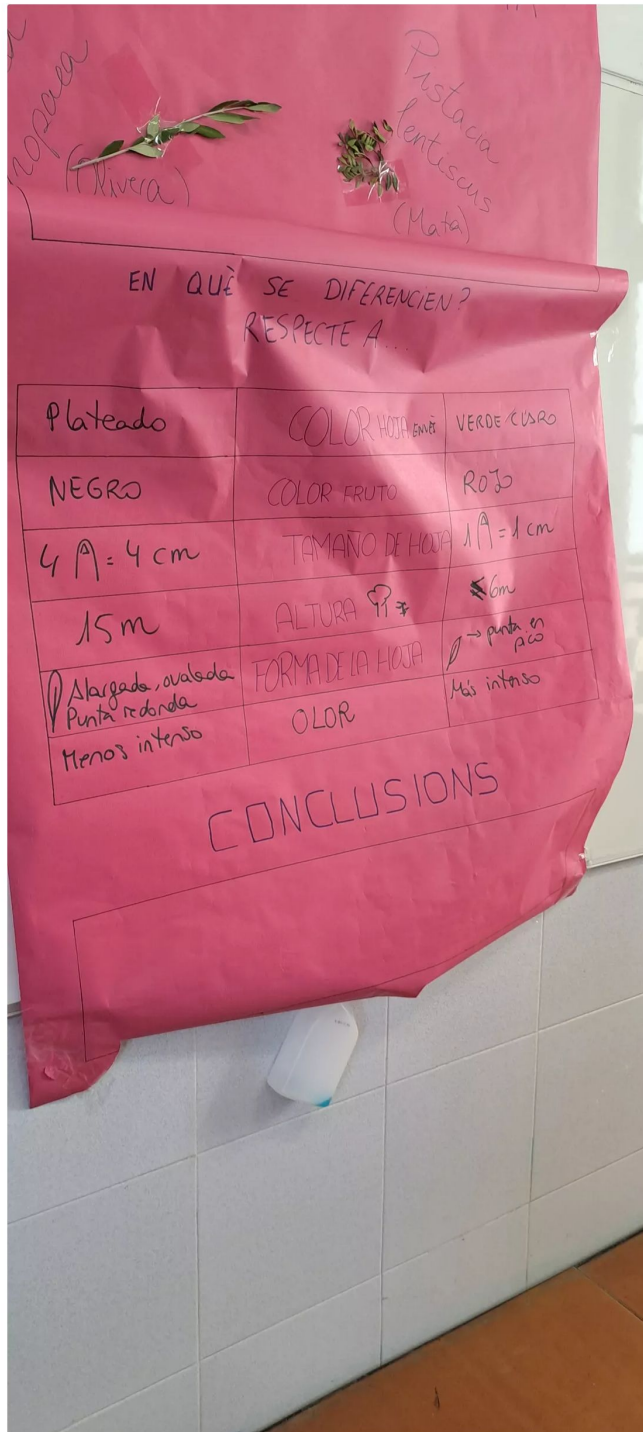 (Olivera)
Pistacia
lentiscus
(Mata)
EN QUÈ SE DIFERENCIEN?
RESPECTE A...
Plateado
COLOR HOJA ENVÉS
VERDE CLARO
NEGRO
COLOR FRUTO
ROJO
4 = 4 cm
TAMAÑO DE HOJA
1 = 1 cm
15m
ALTURA
6m
Alargada, ovalada
Punta redonda
FORMA DE LA HOJA
→ punta en
pico
Menos intenso
OLOR
Más intenso
CONCLUSIONS